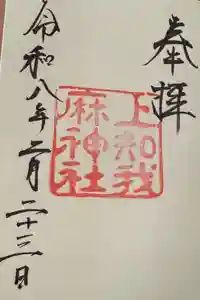 奉拝
上知我
麻神社
令和八年二月二十三日